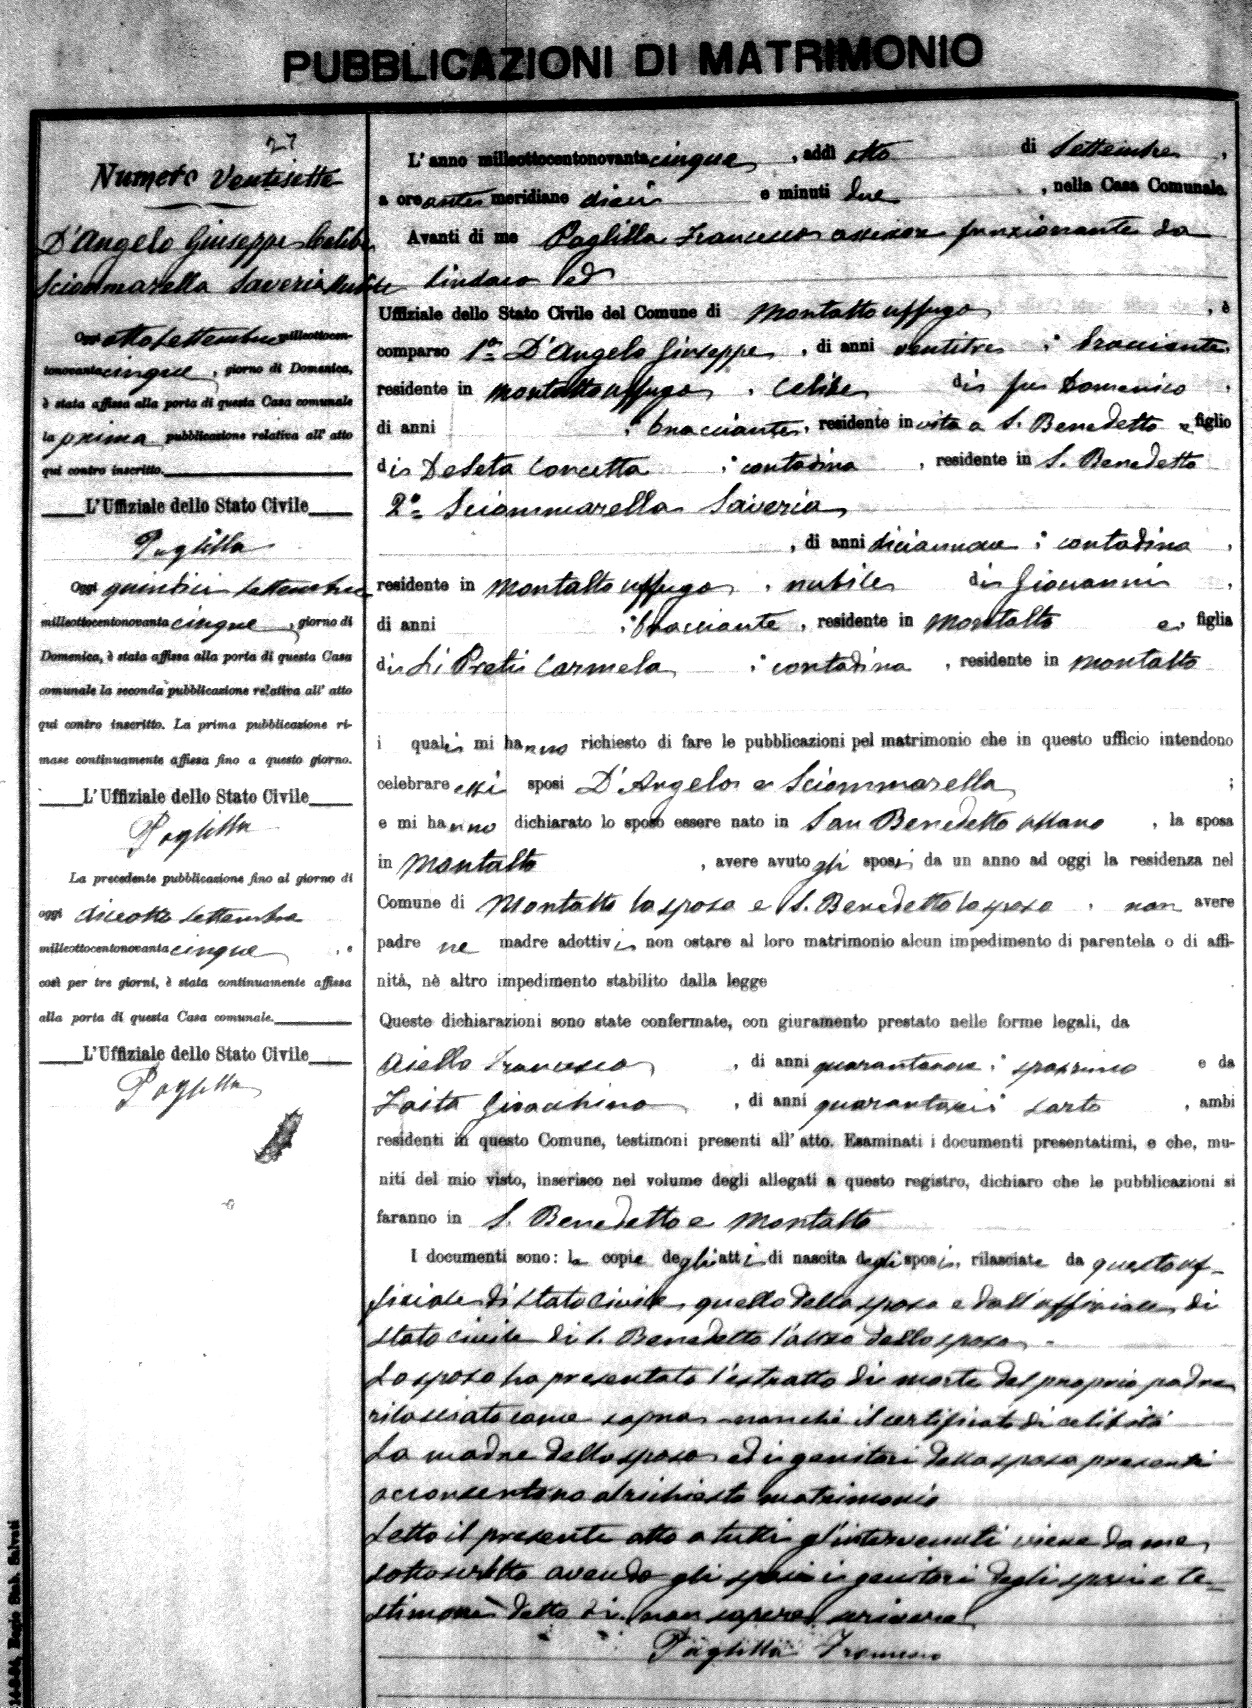 PUBBLICAZIONI DI MATRIMONIO
27
Numero Ventisette
D'Angelo Giuseppe Celibe
Sciammarella Saveria Nubile
Oggi otto Settembre milleottocen-
tonovanta cinque, giorno di Domenica,
è stata affissa alla porta di questa Casa comunale
la prima pubblicazione relativa all' atto
qui contro inscritto.
L'Uffiziale dello Stato Civile
Paglilla
Oggi quindici Settembre
milleottocentonovanta cinque, giorno di
Domenica, è stata affissa alla porta di questa Casa
comunale la seconda pubblicazione relativa all' atto
qui contro inscritto. La prima pubblicazione ri-
mase continuamente affissa fino a questo giorno.
L'Uffiziale dello Stato Civile
Paglilla
La precedente pubblicazione fino al giorno di
oggi diciotto Settembre
milleottocentonovanta cinque, e
così per tre giorni, è stata continuamente affissa
alla porta di questa Casa comunale.
L'Uffiziale dello Stato Civile
Paglilla
L' anno milleottocentonovanta cinque, addì otto di Settembre,
a ore anti meridiane dieci e minuti due, nella Casa Comunale.
Avanti di me Paglilla Francesco assessore funzionante da
Sindaco ed
Uffiziale dello Stato Civile del Comune di Montalto uffugo, è
comparso 1º D'Angelo Giuseppe, di anni ventitre; bracciante,
residente in Montalto uffugo, celibe di fu Domenico,
di anni ; bracciante, residente in vita a S. Benedetto e figlio
di De Seta Concetta ; contadina, residente in S. Benedetto
2º Sciammarella Saveria
, di anni diciannove ; contadina,
residente in Montalto uffugo, nubile di Giovanni,
di anni ; bracciante, residente in Montalto e, figlia
di Li Preti Carmela ; contadina, residente in Montalto
i quali mi hanno richiesto di fare le pubblicazioni pel matrimonio che in questo ufficio intendono
celebrare essi sposi D'Angelo e Sciammarella ;
e mi hanno dichiarato lo sposo essere nato in San Benedetto Ullano, la sposa
in Montalto, avere avuto gli sposi da un anno ad oggi la residenza nel
Comune di Montalto la sposa e S. Benedetto lo sposo, non avere
padre ne madre adottivi non ostare al loro matrimonio alcun impedimento di parentela o di affi-
nità, nè altro impedimento stabilito dalla legge
Queste dichiarazioni sono state confermate, con giuramento prestato nelle forme legali, da
Aiello Francesco, di anni quarantanove ; e da
Zaita Gioacchino, di anni quarantasei ; sarto, ambi
residenti in questo Comune, testimoni presenti all' atto. Esaminati i documenti presentatimi, e che, mu-
niti del mio visto, inserisco nel volume degli allegati a questo registro, dichiaro che le pubblicazioni si
faranno in S. Benedetto e Montalto
I documenti sono: le copie degli atti di nascita degli sposi, rilasciate da questo uf-
fiziale di stato civile quello della sposa e dall'uffiziale di
stato civile di S. Benedetto l'altro dello sposo.
Lo sposo ha presentato l'estratto di morte del proprio padre
rilasciato come sopra nonchè il certificato di celibato
La madre dello sposo ed i genitori della sposa presenti
acconsentono al richiesto matrimonio
Letto il presente atto a tutti gl'intervenuti viene da me
sottoscritto avendo gli sposi i genitori degli sposi e te-
stimoni detto di non sapere scrivere
Paglilla Francesco
14-9-94, Regio Stab. Salvati